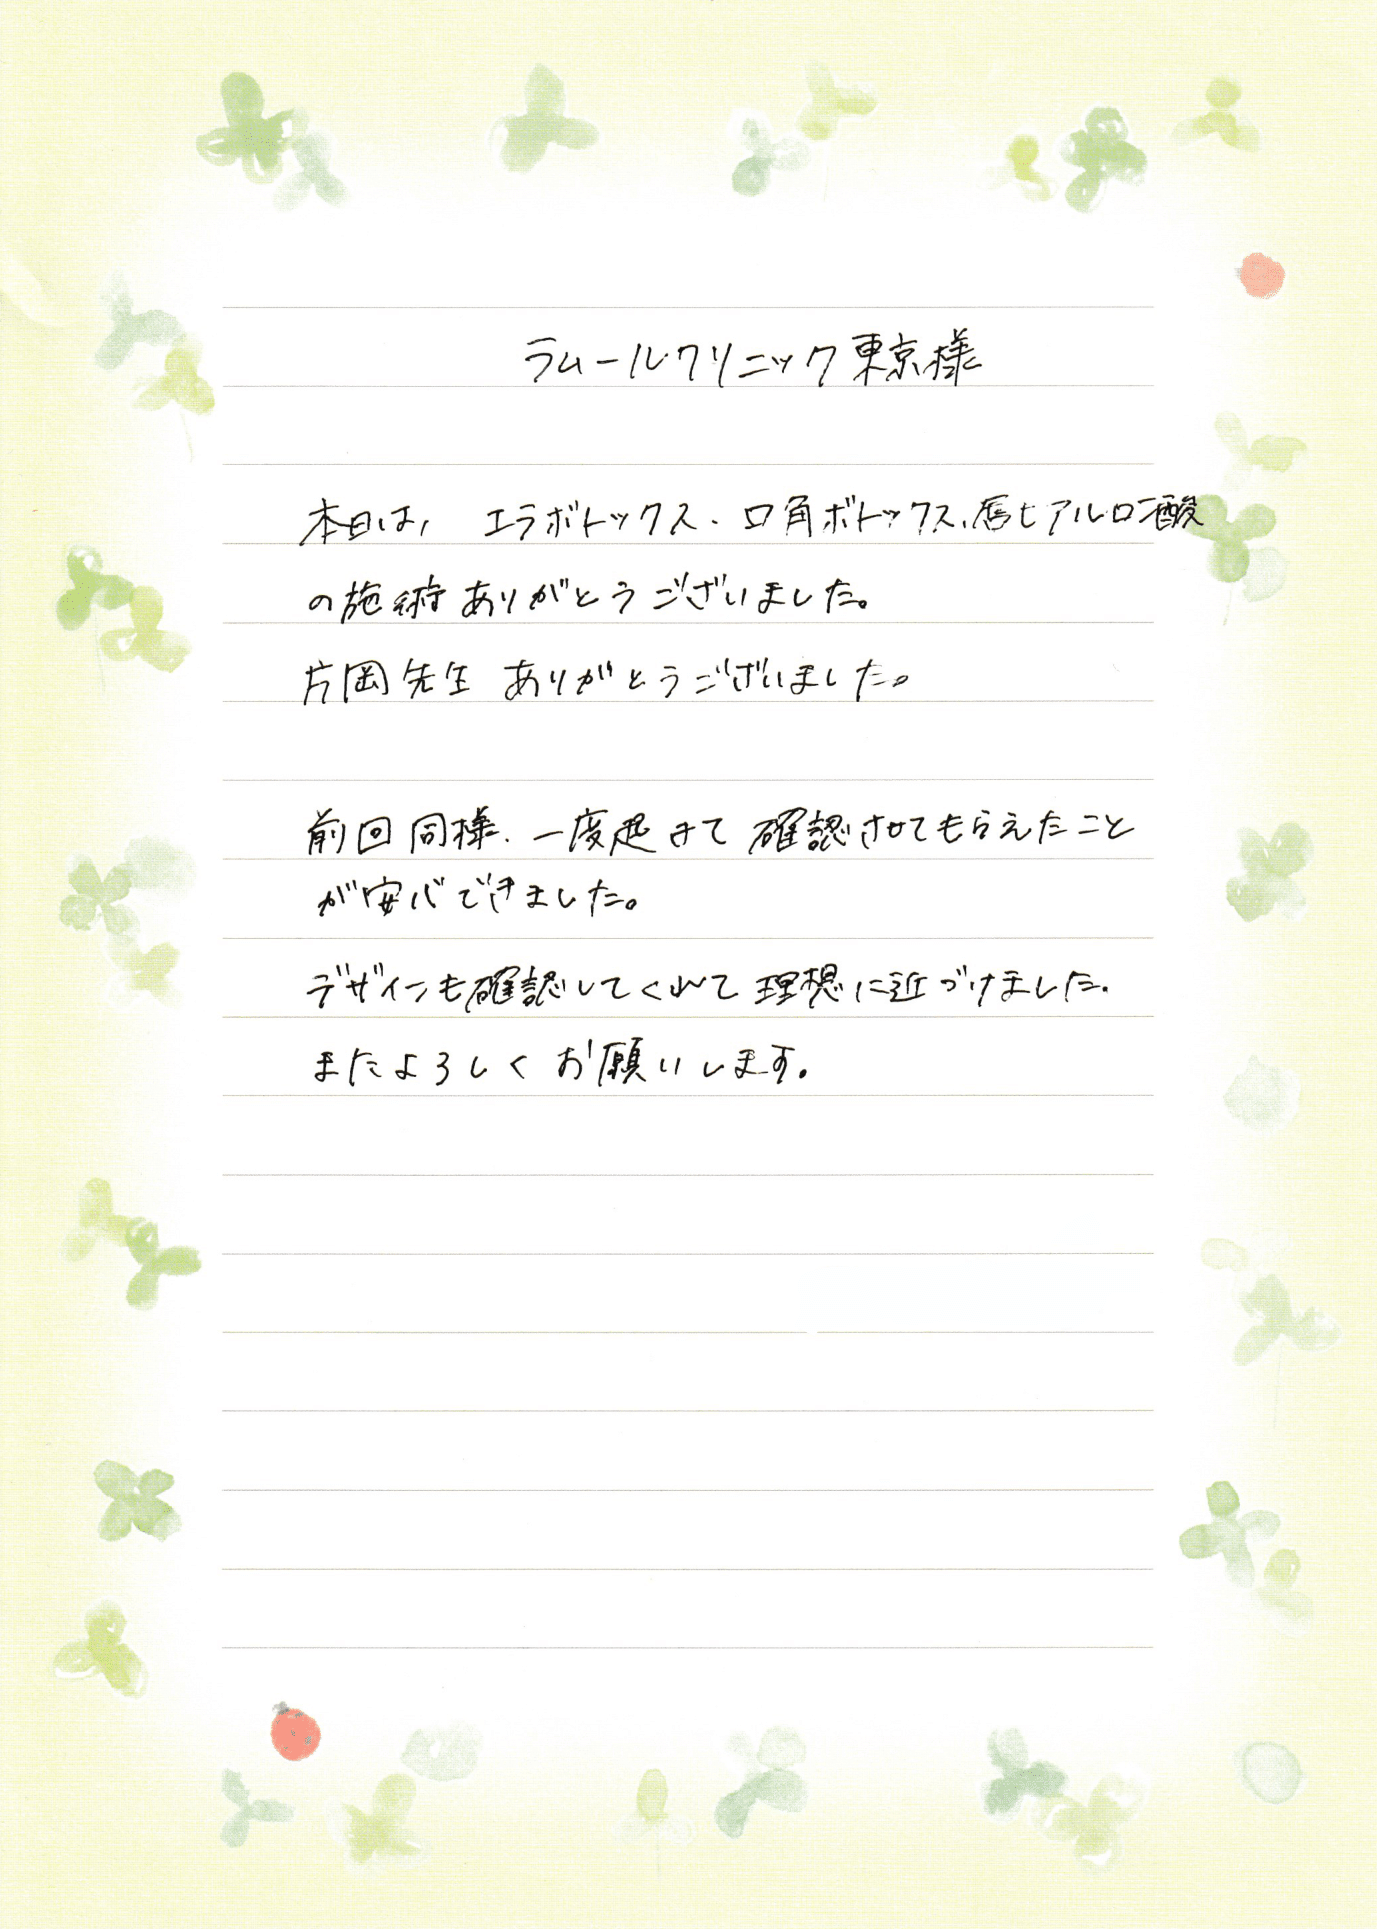 ラムールクリニック東京様
本日は、エラボトックス、口角ボトックス、唇ヒアルロン酸
の施術ありがとうございました。
片岡先生 ありがとうございました。
前回同様、一度起きて確認させてもらえたこと
が安心できました。
デザインも確認してくれて理想に近づけました。
またよろしくお願いします。